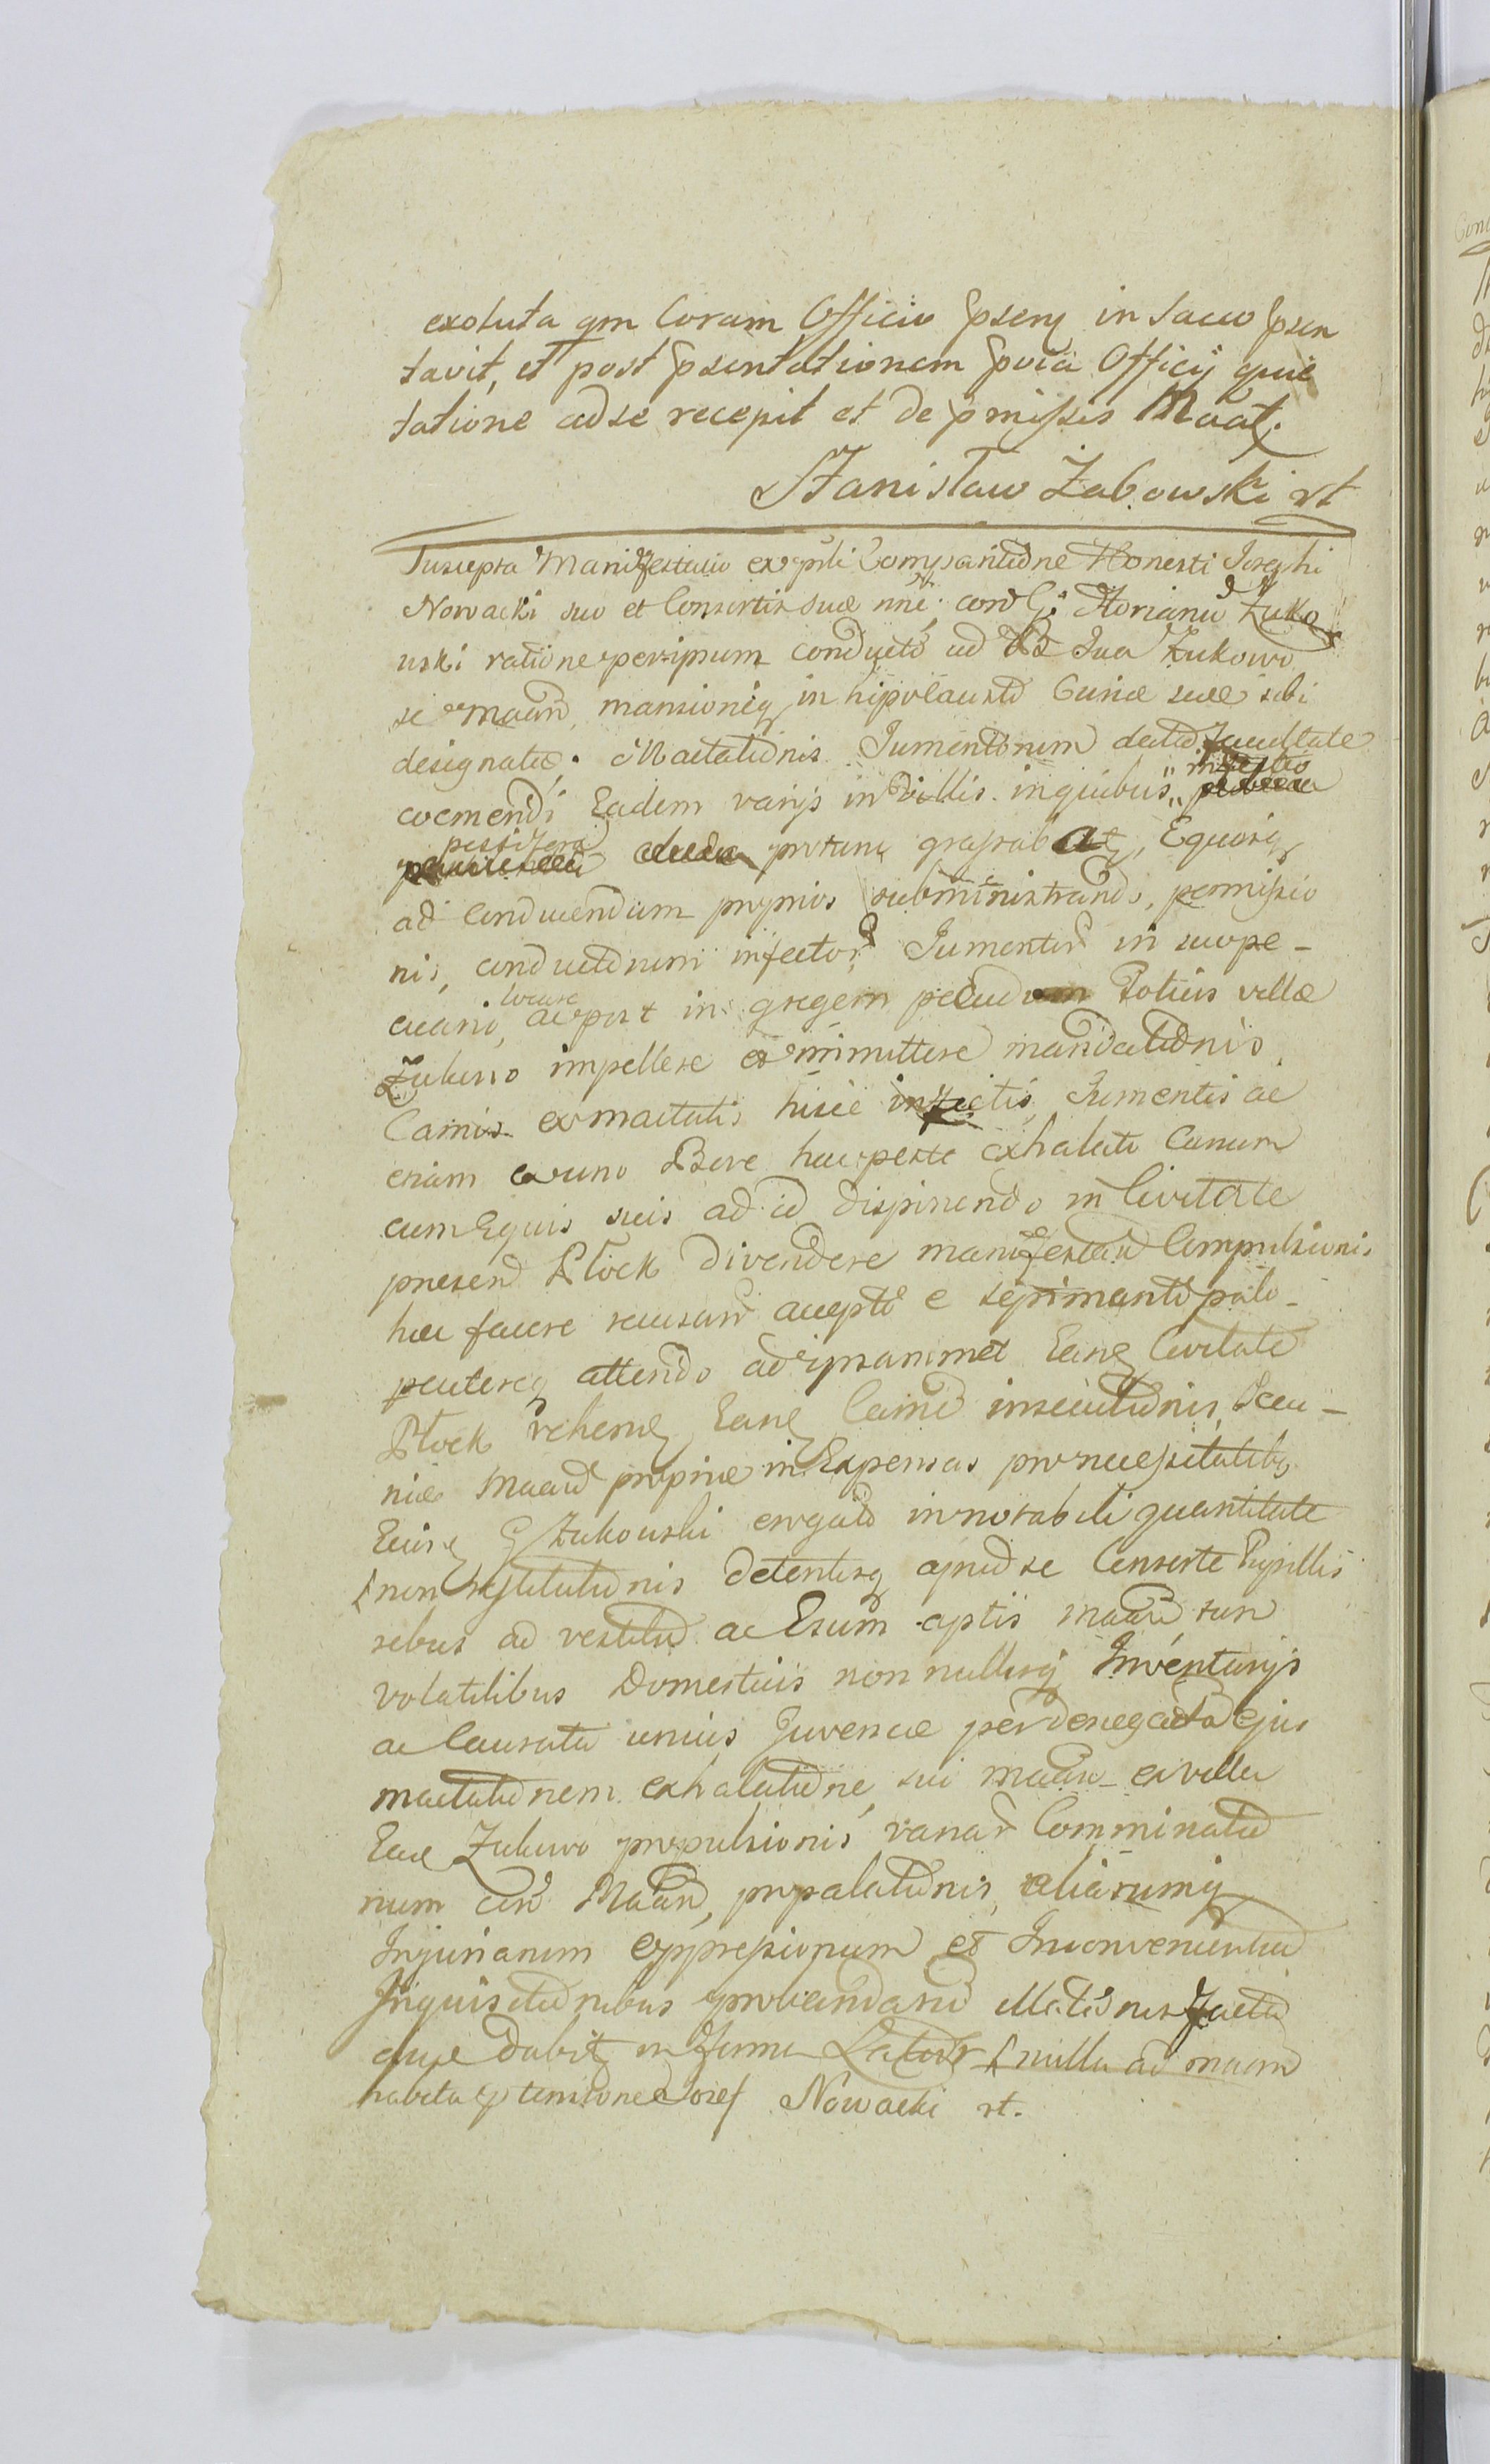 exoluta qm Coram Officio pseng in sacco psen
tavit, et post psentationem pvia Officij quie
tatione ad se recepit et de pmissis Maat.
Stanisław Żabowski rt
Suscepta Manifestatio ex psli Comparitione Honesti Josephi
Nowacki suo et Consortis suæ nne; con G: Florianu Zuko
uski ratione per ipsum conducto ad B Sua Zukowo
se maan, mansioniq in hipocausto Cusinæ suæ sibi
designatæ; Mactationis Jumentorum data facultate
coemendi Eadem varijs in Villis in quibus
pestifera protunc grassabat, Equosq
ad Conducendum proprios subministrando, permissio
nis, conductorum infector Jumentor in suo pe-
cuario, locare ac post in gregem pecudum Totius villæ
Zukowo impellere et immittere mandationis
Carnis ex mactatis hisce infectis Jumentis ac
etiam ex uno Bove hac peste exhalato Canum
cum Equis suis ad id disponendo in Civitate
presend Płock divendere manifestan Compulsionis
hac facere recusan accepto e sepimento palo
pcutereq attendo ad ipsammet Eanq Civitate
Płock vehemq Eanq Carne insecutionis, Pecu-
niæ Maan propriæ in Expensas pro necessitatibq
Eiusq G Zukouski erogato in notabili quantitate
non restitutionis detentisq apud se Conserte Pupillis
rebus ad vestitu ac Esum aptis maan tun
volatilibus Domesticis non nullisq Inventarijs
ac Causata unius Juvencæ per denegata ejus
mactationem exhalatione, sui maan ex villa
Eae Zukowo propulsionis variar Comminatio
num con Maan, propalationis, aliarumq
Injuriarum oppresionum et Inconvenientiu
Inquisitionibus probandaru illationis facta
quæ Dabit in forma Latiori nulla ad maan
habita ptensione Josef Nowacki rt.